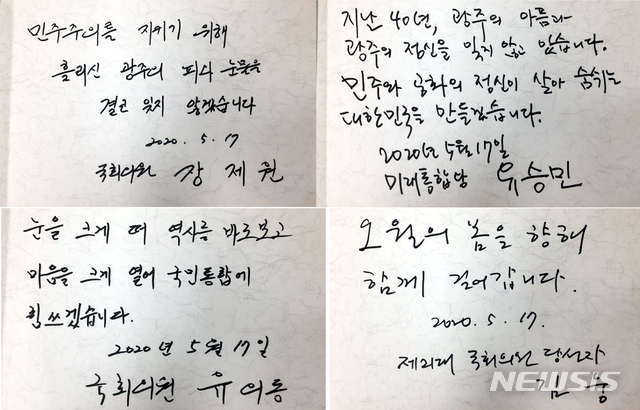 민주주의를 지키기 위해
흘리신 광주의 피와 눈물을
결코 잊지 않겠습니다
2020. 5. 17
국회의원 장제원
지난 40년, 광주의 아픔과
광주의 정신을 잊지 않고 있습니다.
민주와 공화의 정신이 살아 숨쉬는
대한민국을 만들겠습니다.
2020년 5월 17일
미래통합당 유승민
눈을 크게 떠 역사를 바로보고
마음을 크게 열어 국민통합에
힘쓰겠습니다.
2020년 5월 17일
국회의원 유의동
오월의 봄을 향해
함께 걸어갑니다.
2020. 5. 17.
제21대 국회의원 당선자
김웅
NEWSIS